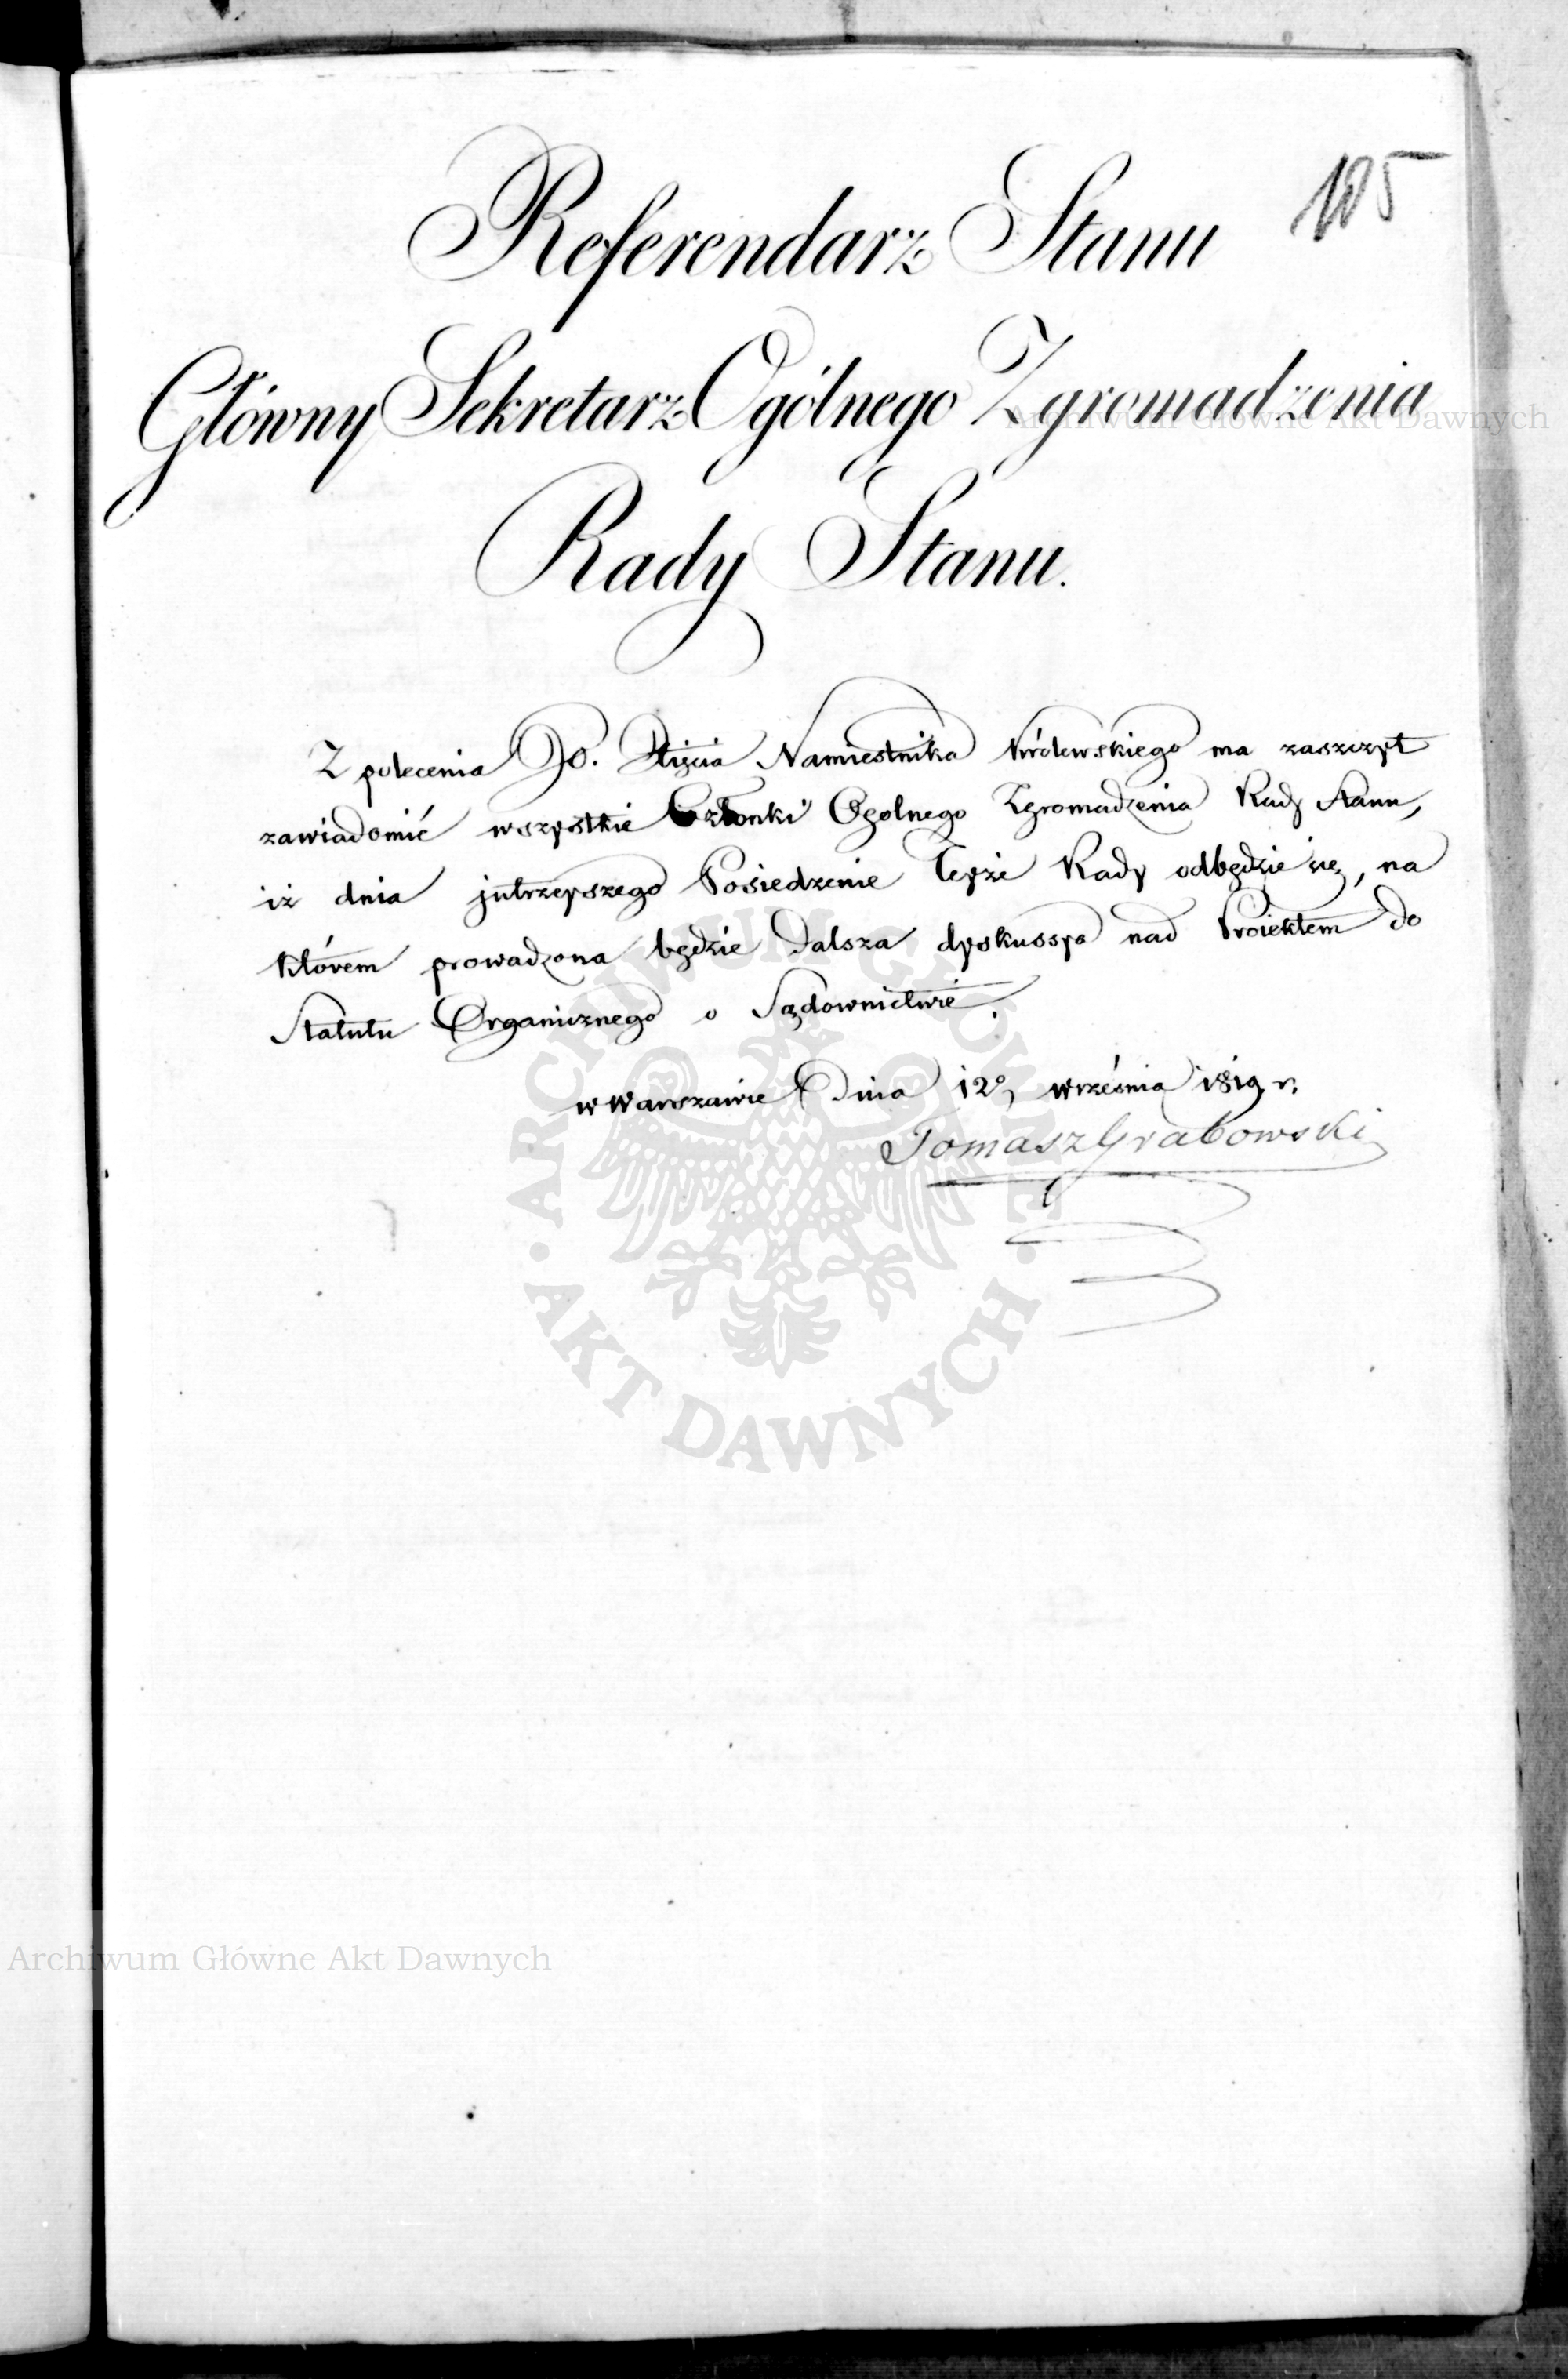 105
Referendarz Stanu
Główny Sekretarz Ogólnego Zgromadzenia
Archiwum Główne Akt Dawnych
Rady Stanu.
Z polecenia JO. Xięcia Namiestnika Królewskiego ma zaszczyt
zawiadomić wszystkie Członki Ogolnego Zgromadzenia Rady Stanu,
iż dnia jutrzeyszego Posiedzenie teyże Rady odbędzie się, na
którem prowadzona będzie dalsza dyskussya nad Proiektem do
Statutu Organicznego o Sądownictwie.
w Warszawie Dnia 12º września 1819 r.
Tomasz Grabowski
ARCHIWUM GŁÓWNE
AKT DAWNYCH
Archiwum Główne Akt Dawnych